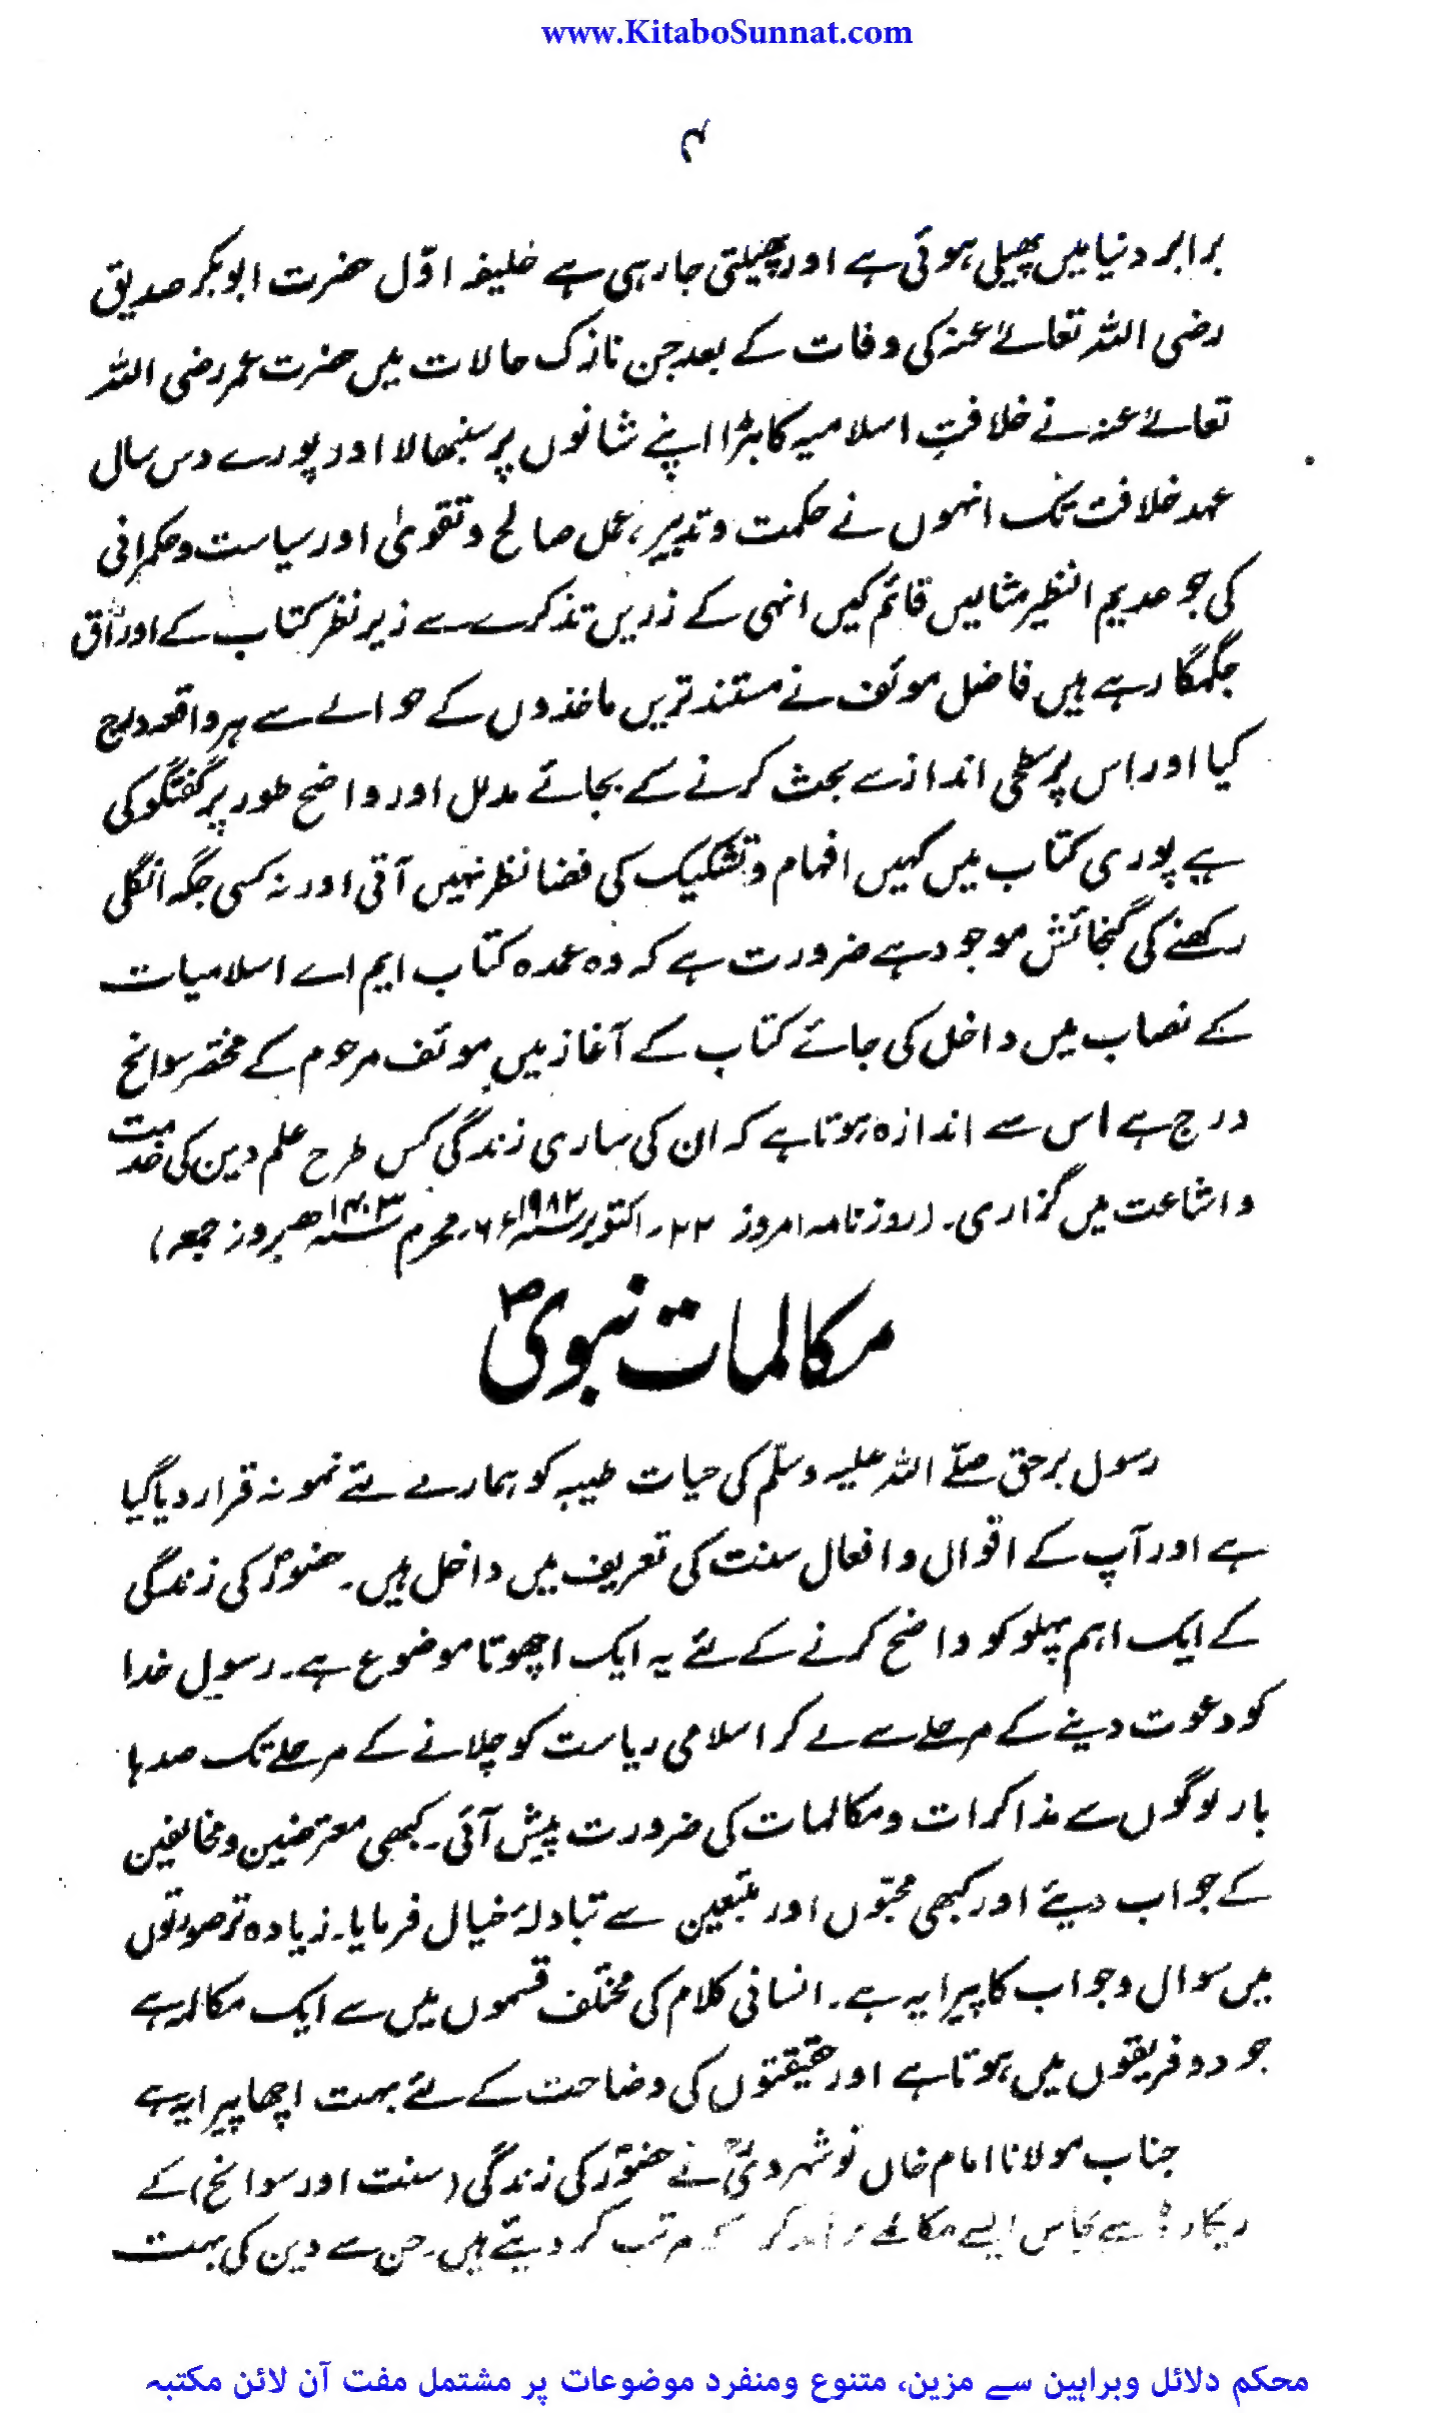 www.KitaboSunnat.com
۴
برابر دنیا میں پھیلی ہوئی ہے اور پھیلتی جا رہی ہے خلیفہ اوّل حضرت ابوبکر صدیق
رضی اللہ تعالےٰ عنہ کی وفات کے بعد جن نازک حالات میں حضرت عمر رضی اللہ
تعالےٰ عنہ نے خلافتِ اسلامیہ کا بڑا اپنے شانوں پر سنبھالا اور پورے دس سال
عہد خلافت تک انہوں نے حکمت و تدبیر، عمل صالح و تقویٰ اور سیاست و حکمرانی
کی جو عدیم النظیر مثالیں قائم کیں انہی کے زریں تذکرے سے زیر نظر کتاب کے اوراق
جگمگا رہے ہیں فاضل موئف نے مستند ترین ماخذوں کے حوالے سے ہر واقعہ درج
کیا اور اس پر سطحی انداز سے بحث کرنے کے بجائے مدلل اور واضح طور پر گفتگو کی
ہے پوری کتاب میں کہیں افہام و تشکیک کی فضا نظر نہیں آتی اور نہ کسی جگہ انگلی
رکھنے کی گنجائش موجود ہے ضرورت ہے کہ وہ عمدہ کتاب ایم اے اسلامیات
کے نصاب میں داخل کی جائے کتاب کے آغاز میں موئف مرحوم کے مختصر سوانح
درج ہے اس سے اندازہ ہوتا ہے کہ ان کی ساری زندگی کس طرح علم دین کی خدمت
و اشاعت میں گزاری۔ (روزنامہ امروز ۲۲۔اکتوبر ۱۹۸۲ء ۶۔محرم ۱۴۰۳ھ بروز جمعہ)
مکالمات نبویؐ
رسول برحق صلّے اللہ علیہ وسلّم کی حیات طیبہ کو ہمارے لئے نمونہ قرار دیا گیا
ہے اور آپ کے اقوال و افعال سنت کی تعریف میں داخل ہیں۔ حضورؐ کی زندگی
کے ایک اہم پہلو کو واضح کرنے کے لئے یہ ایک اچھوتا موضوع ہے۔ رسول خدا
کو دعوت دینے کے مرحلے سے لے کر اسلامی ریاست کو چلانے کے مرحلے تک صدہا
بار لوگوں سے مذاکرات و مکالمات کی ضرورت پیش آئی۔ کبھی معترضین و مخالفین
کے جواب دیئے اور کبھی محبّوں اور متبعین سے تبادلۂ خیال فرمایا۔ زیادہ تر صورتوں
میں سوال و جواب کا پیرایہ ہے۔ انسانی کلام کی مختلف قسموں میں سے ایک مکالمہ ہے
جو دو فریقوں میں ہوتا ہے اور حقیقتوں کی وضاحت کے لئے بہت اچھا پیرایہ ہے
جناب مولانا امام خاں نوشہرویؒ نے حضورؐ کی زندگی (سنت اور سوانح) کے
ریکارڈ سے پچاس ایسے مکالمے کر کے مرتب کر دیتے ہیں۔ جن سے دین کی بہت
محکم دلائل وبراہین سے مزین، متنوع ومنفرد موضوعات پر مشتمل مفت آن لائن مکتبہ